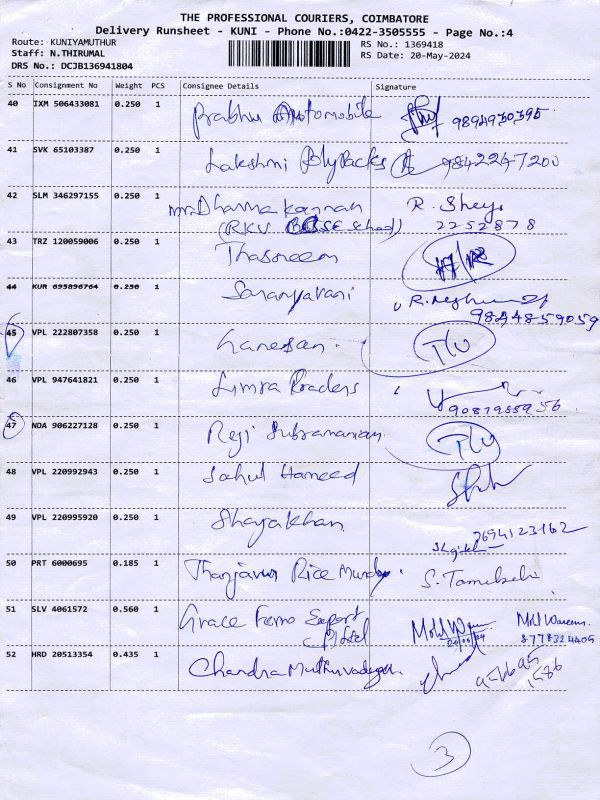 THE PROFESSIONAL COURIERS, COIMBATORE
Delivery Runsheet - KUNI - Phone No.:0422-3505555 - Page No.:4
Route: KUNIYAMUTHUR
Staff: N.THIRUMAL
DRS No.: DCJB136941804
RS No.: 1369418
RS Date: 20-May-2024
S No Consignment No Weight PCS Consignee Details Signature
40 IXM 506433081 0.250 1 Prabhu Automobile 9894930395
41 SVK 65103387 0.250 1 Lakshmi Poly Packs 9842247200
42 SLM 346297155 0.250 1 Mr. Dharma Kannan R. Sheyr
(RKV School) 2252878
43 TRZ 120059006 0.250 1 Thasneem
44 KUR 695896764 0.250 1 Saranyavani
9844859059
45 VPL 222807358 0.250 1 Ganesan
46 VPL 947641821 0.250 1 Limra Traders
9087955956
47 NDA 906227128 0.250 1 Reji Subramanian
48 VPL 220992943 0.250 1 Sahul Hameed
49 VPL 220995920 0.250 1 Shayakhan
7694123162
50 PRT 6000695 0.185 1 Thanjavur Rice Mundy.
51 SLV 4061572 0.560 1 Grace Ferro Export
P Ltd Mohd Mohd Waseem
8778324405
52 HRD 20513354 0.435 1 Chandra Muthuvadugan
3